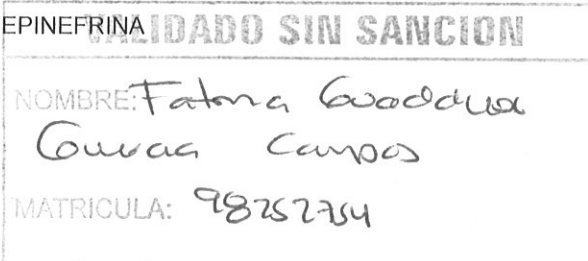 EPINEFRINA
VALIDADO SIN SANCION
NOMBRE: Fatima
Campos
MATRICULA: 98252754